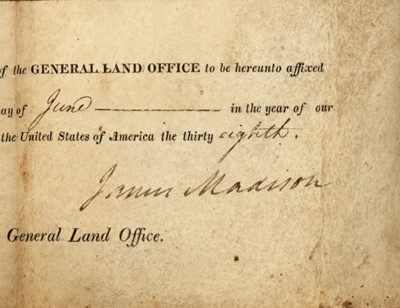 of the GENERAL LAND OFFICE to be hereunto affixed
day of June in the year of our
the United States of America the thirty eighth.
James Madison
General Land Office.